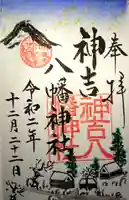 奉拝
神吉
八幡神社
令和二年
十二月二十二日
神吉八
幡神社